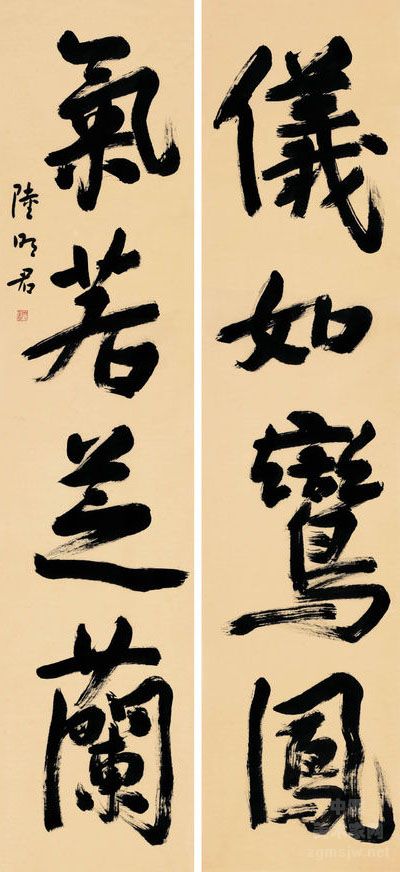 儀如鸞鳳
氣若芝蘭
陸明君
zgmsjw.net